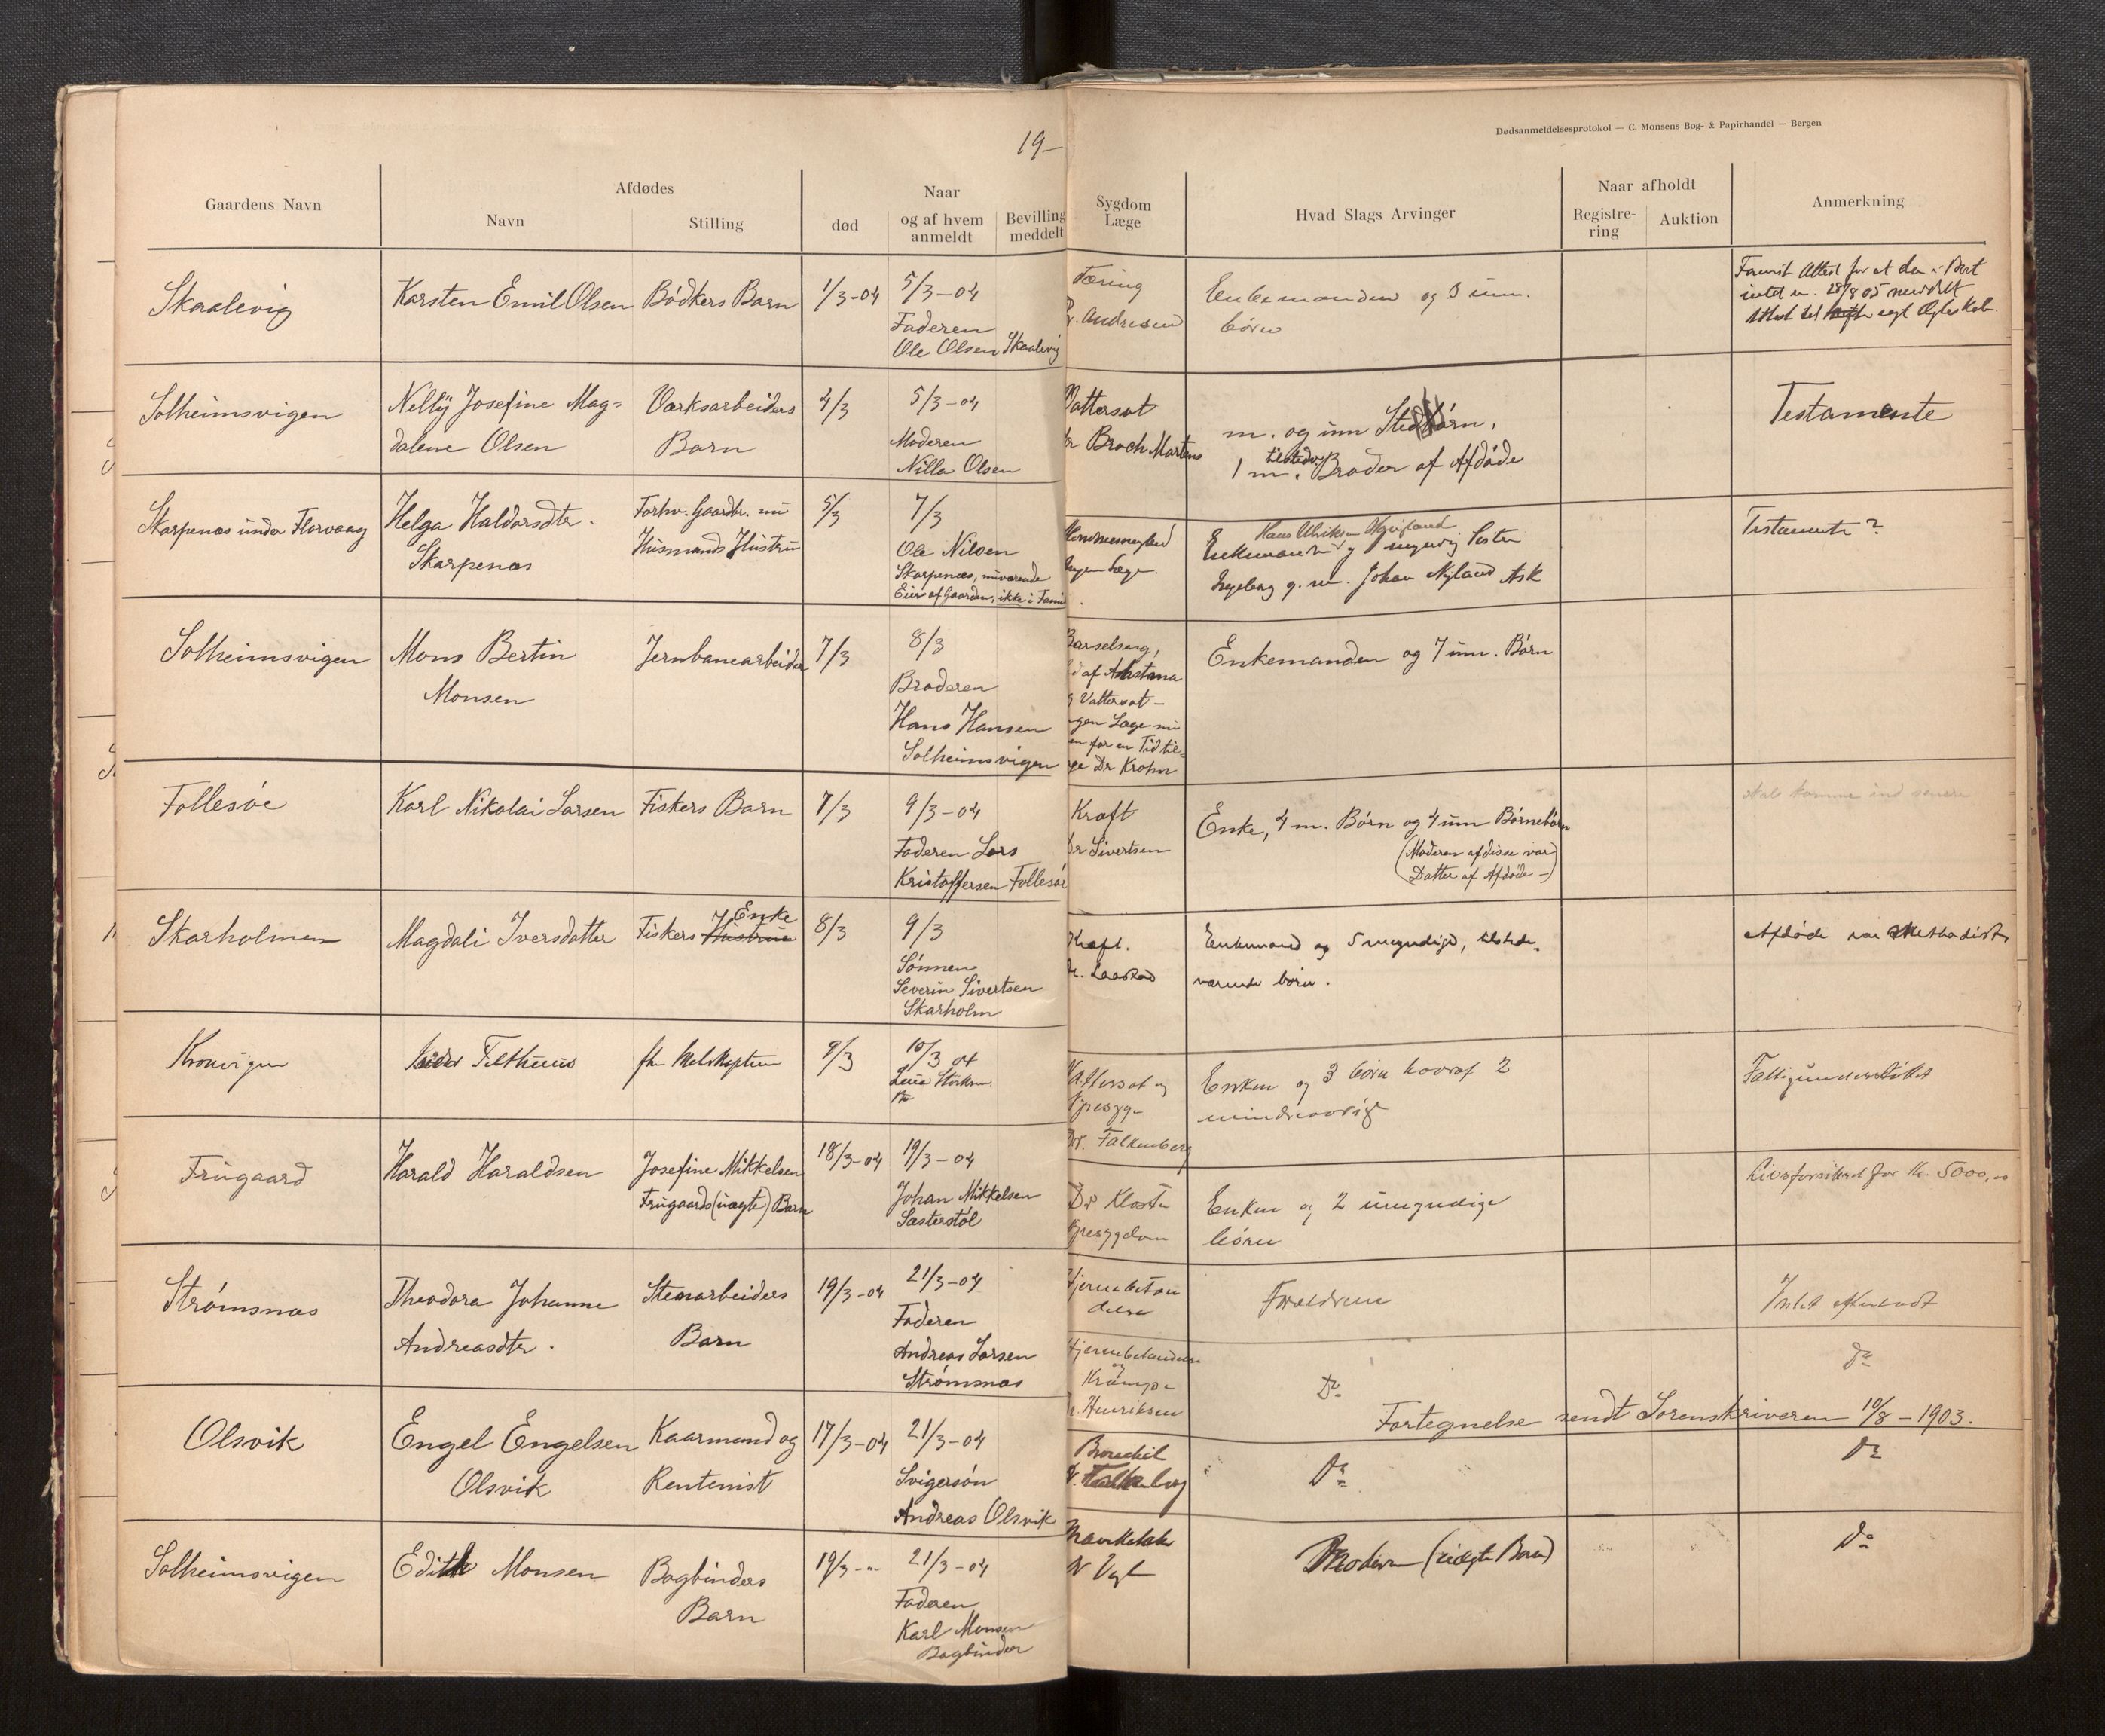 19–
Gaardens Navn
Afdødes
Navn
Stilling
død
Naar
og af hvem
anmeldt
Bevilling
meddelt
Skaalevig
Karsten Emil Olsen
Bødkers Barn
1/3-04
5/3-04
Faderen
Ole Olsen Skaalevig
Solheimsvigen
Nelly Josefine Mag=
dalene Olsen
Værksarbeiders
Barn
4/3
5/3-04
Moderen
Nilla Olsen
Skarpenæs under Florvaag
Helga Haldorsdtr.
Skarpenæs
Forhv. Gaardbr. nu
Husmands Hustru
5/3
7/3
Ole Nilsen
Skarpenæs, nuværende
Eier af Gaarden, ikke i Fami
Solheimsvigen
Mons Bertin
Monsen
Jernbanearbeider
7/3
8/3
Broderen
Hans Hansen
Solheimsvigen
Follesøe
Karl Nikolai Larsen
Fiskers Barn
7/3
9/3-04
Faderen Lars
Kristoffersen Follesøe
Skarholmen
Magdali Iversdatter
Enke
Fiskers Hustrue
8/3
9/3
Sønnen
Severin Sivertsen
Skarholm
Kronvigen
Filthuus
9/3
10/3 04
Frugaard
Harald Haraldsen
Josefine Mikkelsen
Frugaards (uægte) Barn
18/3-04
19/3-04
Johan Mikkelsen
Sæsterstøl
Strømsnæs
Theodora Johanne
Andreasdtr.
Stenarbeiders
Barn
19/3-04
21/3-04
Faderen
Andreas Larsen
Strømsnæs
Olsvik
Engel Engelsen
Olsvik
Kaarmand og
Rentenist
17/3-04
21/3-04
Svigersøn
Andreas Olsvik
Solheimsvigen
Edith Monsen
Bogbinders
Barn
19/3-"-
21/3-04
Faderen
Karl Monsen
Bogbinder
Dødsanmeldelsesprotokol — C. Monsens Bog- & Papirhandel — Bergen
Sygdom
Læge
Hvad Slags Arvinger
Naar afholdt
Registre-
ring
Auktion
Anmerkning
Tæring
Andresen
Enkemanden og 5 um.
børn
Vattersot
Dr Broch Martens
m. og um Stedbørn,
1 m. tilstedev. Broder af Afdøde
Testamente
Ingen Læge.
Enkemand og 1 myndig Søster
Ingeborg g. m. Johan Nyland Ask
Testamente?
Barselseng,
d af Asthma
g Vattersot –
gen Læge nu
en for en Tid til=
ge Dr Krohn
Enkemanden og 7 um. Børn
Kræft
Dr Sivertsen
Enke, 4 m. Børn og 4 um Børnebørn
(Moderen af disse var)
(Datter af Afdøde –)
komme ind senere
Kræft.
Dr. Laastad
Enkemand og 5 myndige, tilstede-
værende børn.
Afdøde var Methodist
Vattersot og
Dr. Falkenberg
Enken og 3 børn hvoraf 2
mindreaarige
Fattigunderstøttet
Dr Kloster
Enken og 2 umyndige
børn
Livsforsikret for Kr. 5000,00
Hjernebetæn
delse
Forældrene
Intet efterladt
Hjernebetændelse
og
Krampe
Dr. Henriksen
Do
Do
Fortegnelse sendt Sorenskriveren 10/8 – 1903.
Dr. Falkenberg
Do
Do
Dr Vogt
Moderen (uægte Barn)
Do